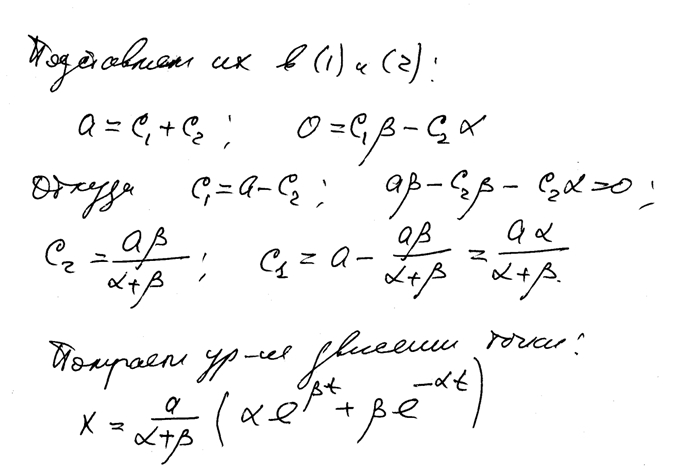 Подставляем их в (1) и (2):
a = C₁ + C₂ ; 0 = C₁β − C₂α
Откуда C₁ = a − C₂ ; aβ − C₂β − C₂α = 0 ;
C₂ = aβ/(α+β) ; C₁ = a − aβ/(α+β) = aα/(α+β).
Получаем ур-ие движения точки:
x = a/(α+β) (αe^{βt} + βe^{−αt})